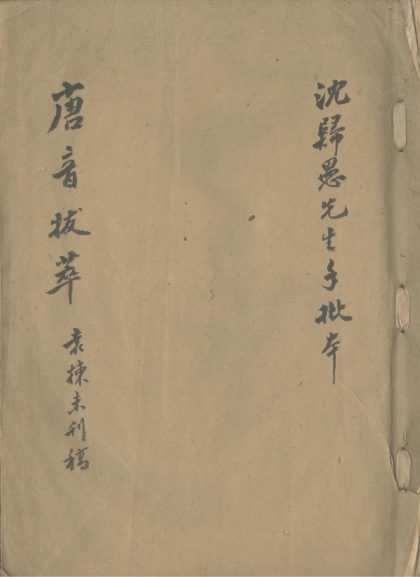 沈歸愚先生手批本
唐音拔萃 袁棟未刊稿